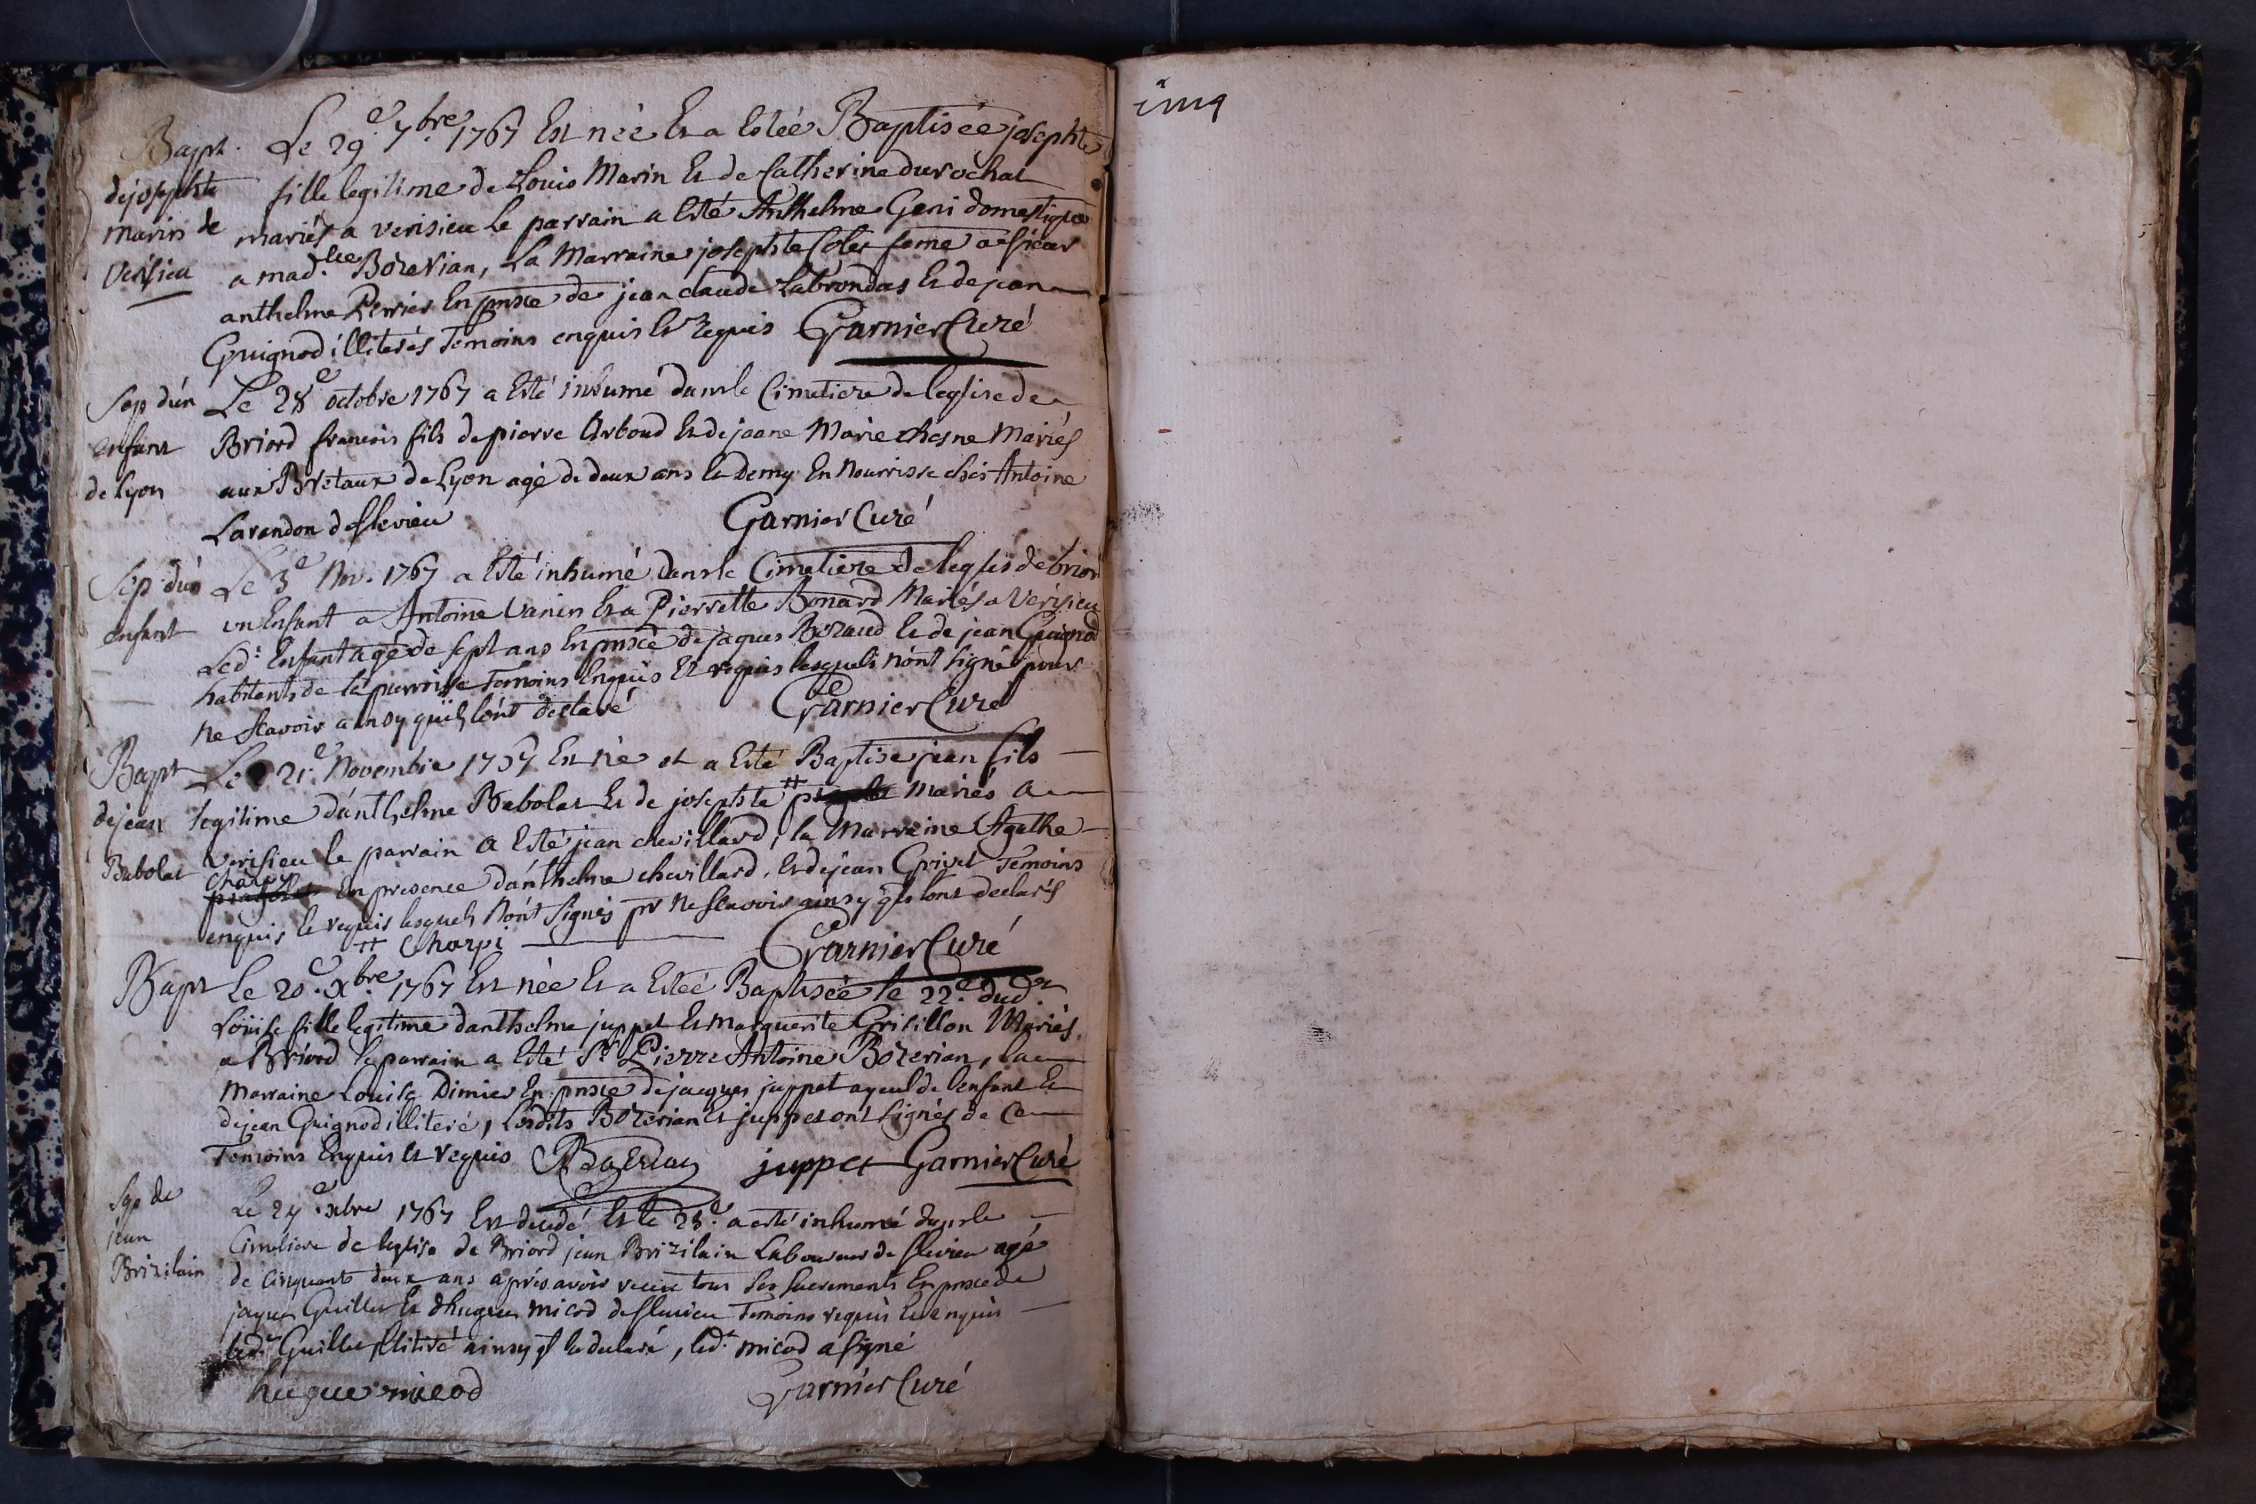 Bapt.
de josephte
marin de
Verisieu
Le 29.e 7.bre 1767 Est née Et a Estéé Baptisée josephte
fille legitime de Louis Marin Et de Catherine durochat
mariés a verisieu le parrain a Esté Anthelme Geni domestique
a mad.lle Bozerian, La Marraine josephte Colet feme a
anthelme Perrier En pnsce de jean claude Labrondas Et de jean
Guignod illiterés Temoins enquis Et Requis Garnier Curé
Sep d'un
enfant
de Lyon
Le 28e octobre 1767 a Esté inhumé dans le Cimetiere de leglise de
Briord francois fils de pierre Arboud Et de jeane Marie chesne Mariés
aux Brétaux de Lyon agé de deux ans Et Demy En Nourrisse chés Antoine
Lavendon de flevieu Garnier Curé
Sep d'un
enfant
Le 3e Nov. 1767 a Esté inhumé dans le Cimetiere de leglis de brior
un Enfant a Antoine Vanin Et a Pierrette Bonard Mariés a Verisieu
Led.t Enfant agé de sept ans En pnsce de jaques Bozaud Et de jean Guignod
habitants de la parroisse Temoins Enquis Et requis lesquels n'ont signé pour
ne scavoir ainsy quils l'ont declaré Garnier Curé
Bapt
de jean
Babolat
Le 21.e Novembre 1767 Est né et a Esté Baptisé jean fils
legitime d'anthelme Babolat Et de josephte # Mariés a
verisieu le parrain a Esté jean chevillard, la Marraine Agathe
charpy En presence d'anthelme chevillard, Et de jean Grivel Temoins
enquis Et requis lesquels N'ont Signés pr Ne scavoir ainsy qls lont declarés
# Charpi Garnier Curé
Bapt
Le 20.e xbre 1767 Est née Et a Estéé Baptisée le 22.e dud.t
Loüise fille legitime d'anthelme juppet Et Marguerite Grisillon Mariés
a Briord le parrain a Esté Sr Pierre Antoine Bozerian, la
Marraine Louise Dimier En pnsce de jacques juppet ayeul de l'enfant Et
de jean Guignod illiteré, Lesdits Bozerian Et juppet ont signés de ce
Temoins Enquis Et Requis Bozerian juppet Garnier Curé
Sep de
jean
Brizilain
Le 27.e xbre 1767 Est decedé Et le 28.e a esté inhumé dans le
Cimetiere de leglise de Briord jean Brizilain Laboureur de flevieu agé
de cinquante deux ans aprés avoir receu tous Ses Sacrements En pnsce de
jaques Guillet Et d'hugues micod de flevieu Temoins requis Et enquis
led.t Guillet illitéré ainsy ql la declaré, led.t micod a signé
hugue micod Garnier Curé